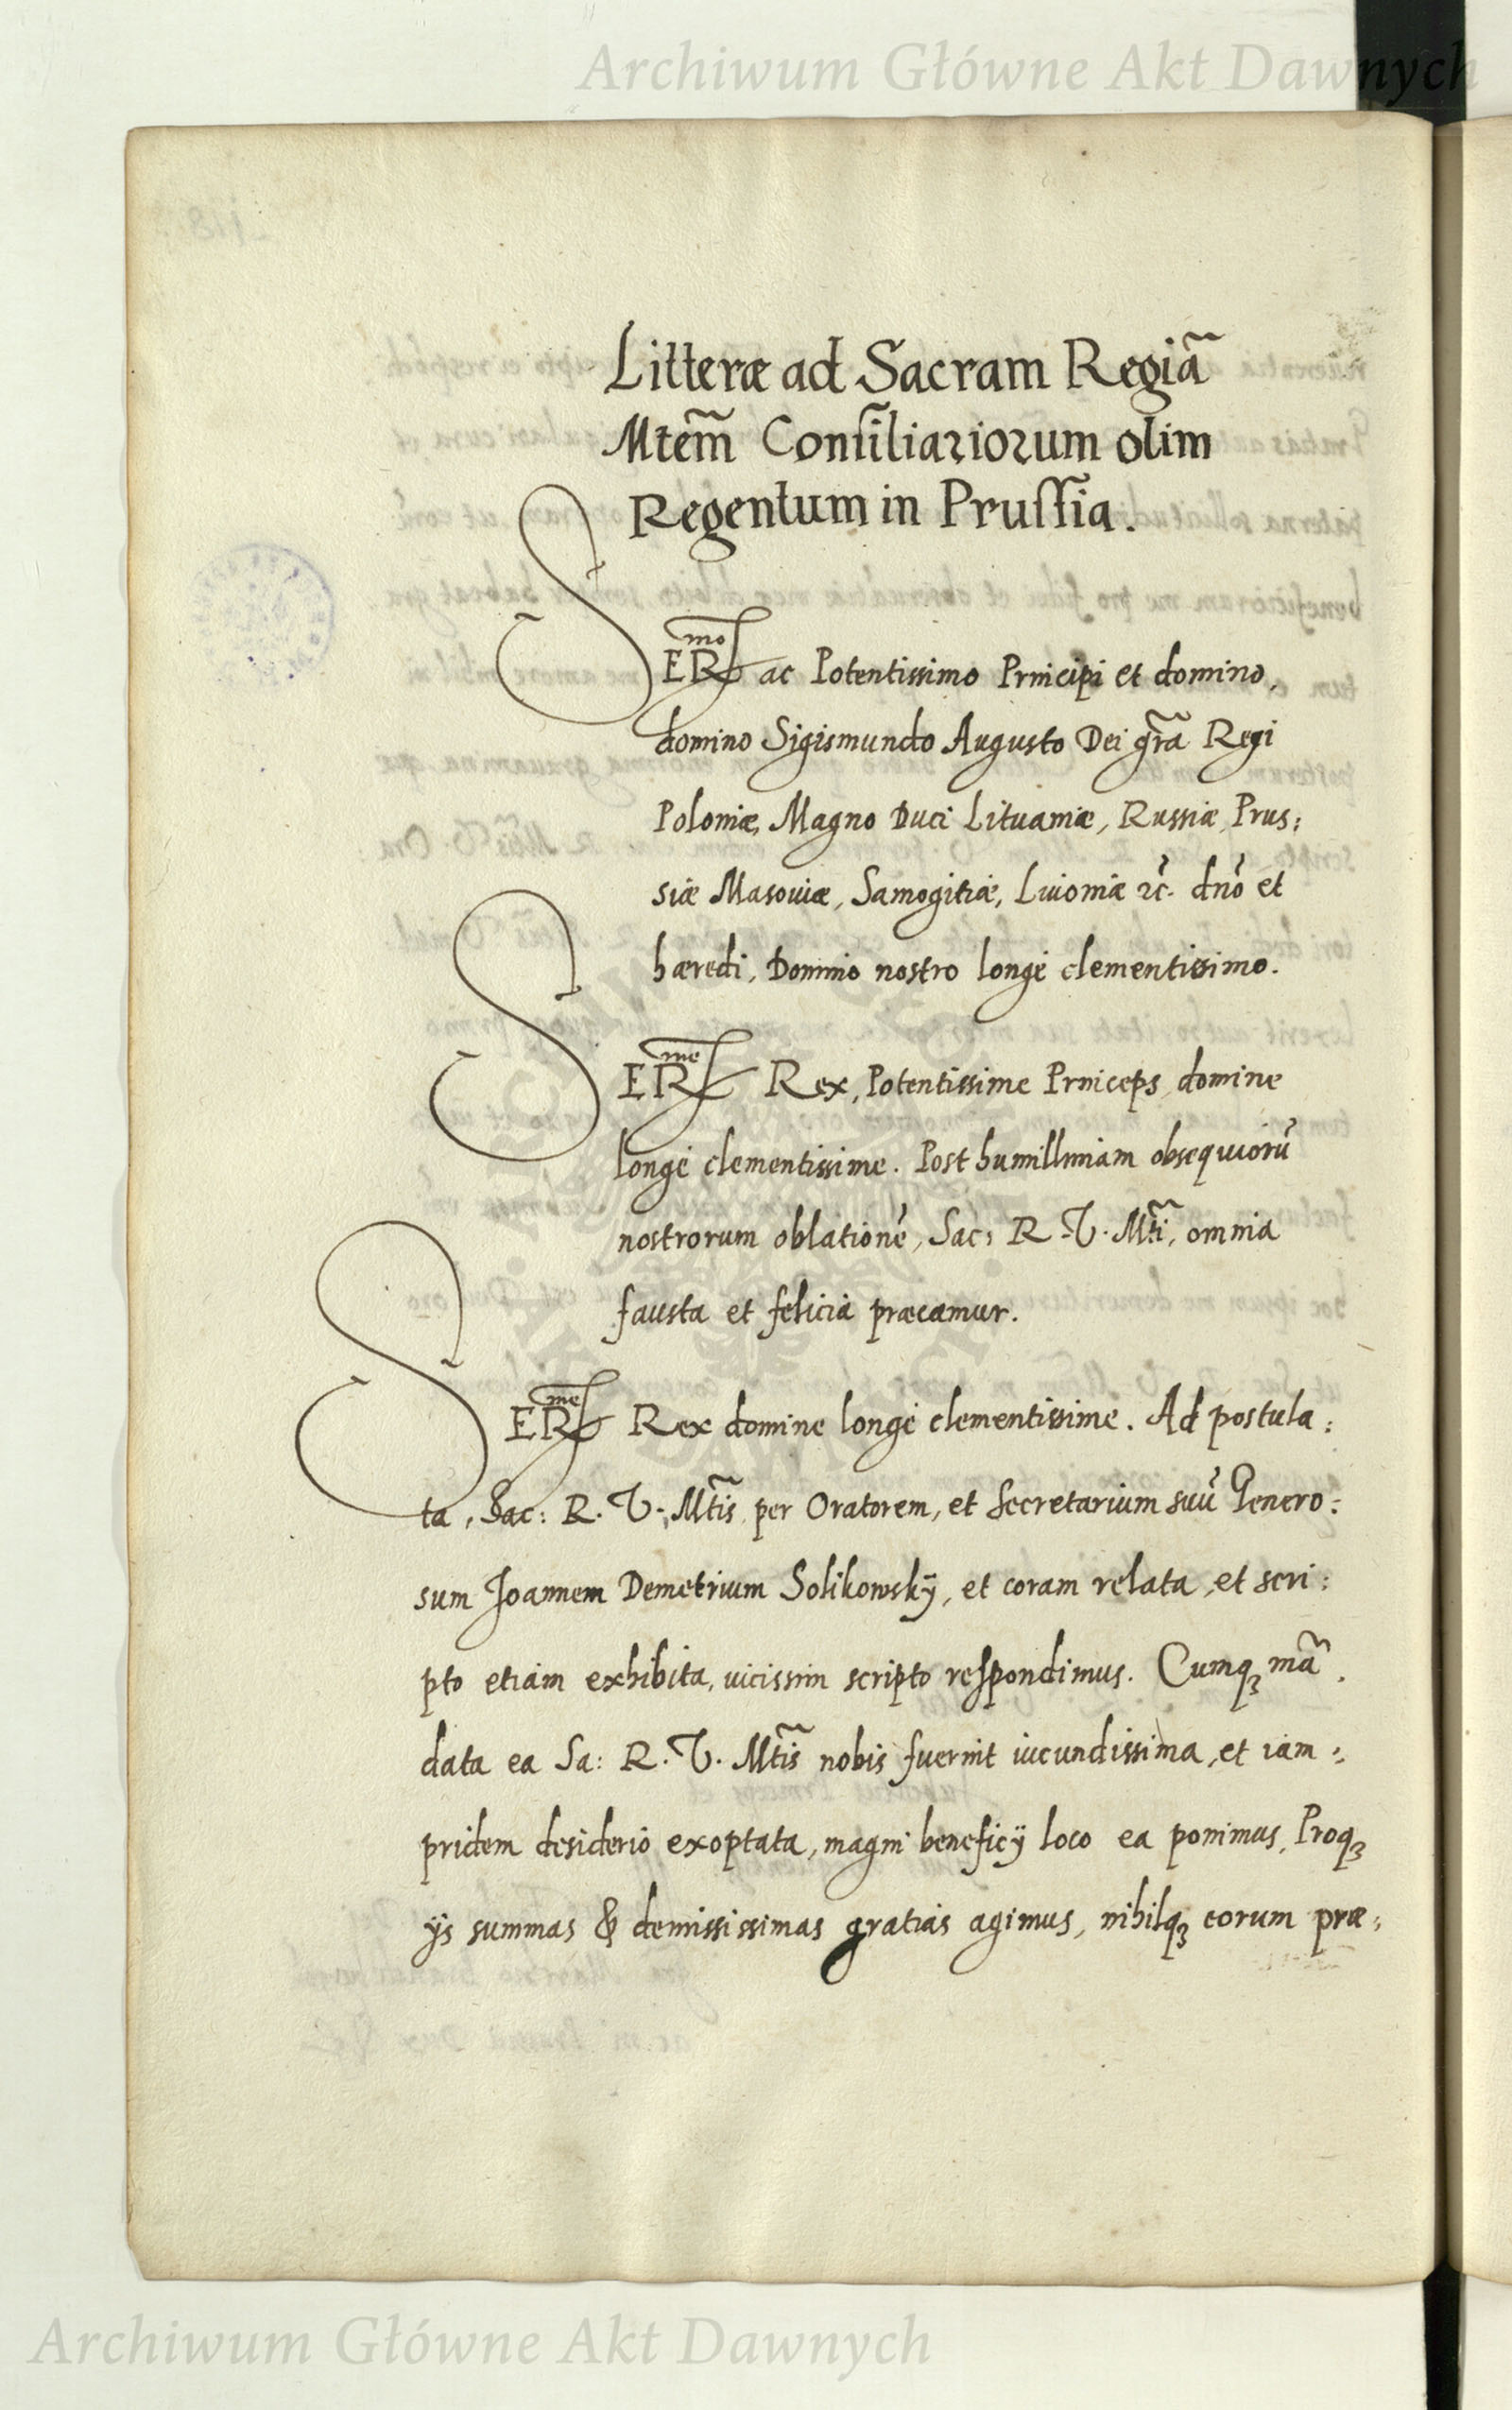 Archiwum Główne Akt Dawnych
Litteræ ad Sacram Regiã
Mtem̃ Consiliariorum olim
Regentum in Prussia.
SER^mo ac Potentissimo Principi et domino,
domino Sigismundo Augusto Dei gr̃a Regi
Poloniæ, Magno Duci Lituaniæ, Russiæ, Prus:
siæ Masouiæ, Samogitiæ, Liuoniæ ꝛc̃. dn̄o et
hæredi, Domino nostro longè clementissimo.
SER^me Rex, Potentissime Princeps, domine
longè clementissime. Post humillimam obsequiorū
nostrorum oblationē, Sac: R. V. Mt̃i, omnia
fausta et felicia præcamur.
SER^me Rex domine longè clementissime. Ad postula:
ta, Sac: R. V. Mt̃is per Oratorem, et Secretarium suū Genero:
sum Joannem Demetrium Solikowskÿ, et coram relata, et scri:
pto etiam exhibita, uicissim scripto respondimus. Cumqꝫ mã.
data ea Sa: R. V. Mt̃is nobis fuerint iucundissima, et iam:
pridem desiderio exoptata, magni beneficÿ loco ea ponimus, Proqꝫ
ÿs summas & demississimas gratias agimus, nihilqꝫ eorum præ:
Archiwum Główne Akt Dawnych